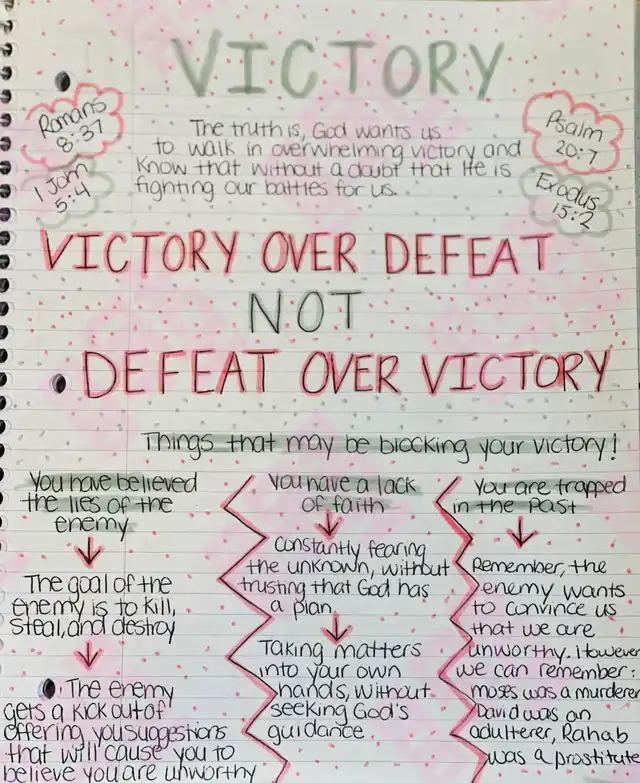 VICTORY
Romans
8:37
1 John
5:4
The truth is, God wants us
to walk in overwhelming victory and
know that without a doubt that He is
fighting our battles for us.
Psalm
20:7
Exodus
15:2
VICTORY OVER DEFEAT
NOT
DEFEAT OVER VICTORY
Things that may be blocking your victory!
You have believed
the lies of the
enemy
The goal of the
enemy is to kill,
steal, and destroy
The enemy
gets a kick out of
offering you suggestions
that will cause you to
believe you are unworthy
You have a lack
of faith
Constantly fearing
the unknown, without
trusting that God has
a plan.
Taking matters
into your own
hands, without
seeking God's
guidance.
You are trapped
in the past
Remember, the
enemy wants
to convince us
that we are
unworthy. However
we can remember:
moses was a murderer
David was an
adulterer, Rahab
was a prostitute